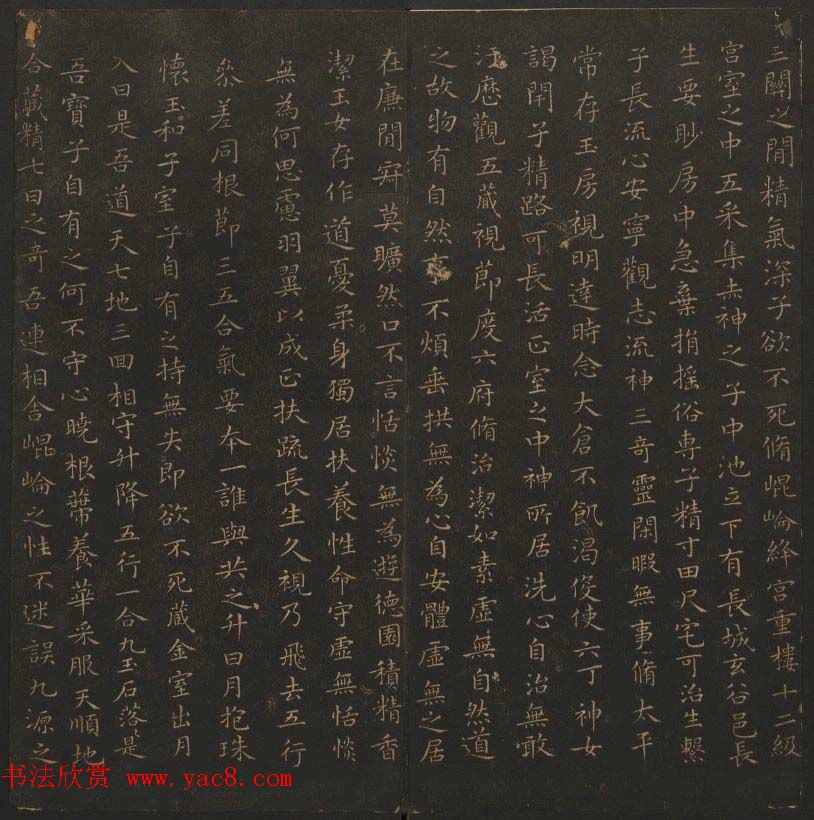 三關之閒精氣深子欲不死脩崐崘絳宮重樓十二級
宮室之中五采集赤神之子中池立下有長城玄谷邑長
生要眇房中急棄捐搖俗專子精寸田尺宅可治生繫
子長流心安寧觀志流神三奇靈閑暇無事脩太平
常存玉房視明達時念大倉不飢渴役使六丁神女
謁閇子精路可長活正室之中神所居洗心自治無敢
汙歷觀五藏視節度六府脩治潔如素虛無自然道
之故物有自然事不煩垂拱無為心自安體虛無之居
在廉閒寂莫曠然口不言恬惔無為遊德園積精香
潔玉女存作道憂柔身獨居扶養性命守虛無恬惔
無為何思慮羽翼以成正扶疏長生久視乃飛去五行
參差同根節三五合氣要本一誰與共之升日月抱珠
懷玉和子室子自有之持無失即欲不死藏金室出月
入日是吾道天七地三回相守升降五行一合九玉石落是
吾寶子自有之何不守心曉根蔕養華采服天順地
合藏精七日之奇吾連相舍崐崘之性不迷誤九源之
书法欣赏 www.yac8.com